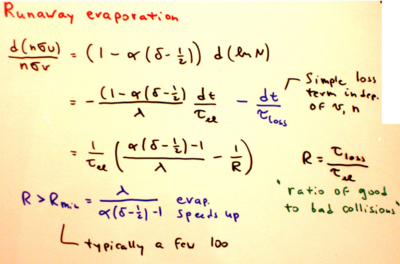 Runaway evaporation
d(nσv)/nσv = (1 - α(δ-½)) d(ln N)
= - (1-α(δ-½)/λ dt/τel - dt/τloss
Simple loss
term indep.
of v, n
= 1/τel (α(δ-½)-1/λ - 1/R)
R = τloss/τel
"ratio of good
to bad collisions"
R > Rmin = λ/α(δ-½)-1 evap. speeds up
typically a few 100